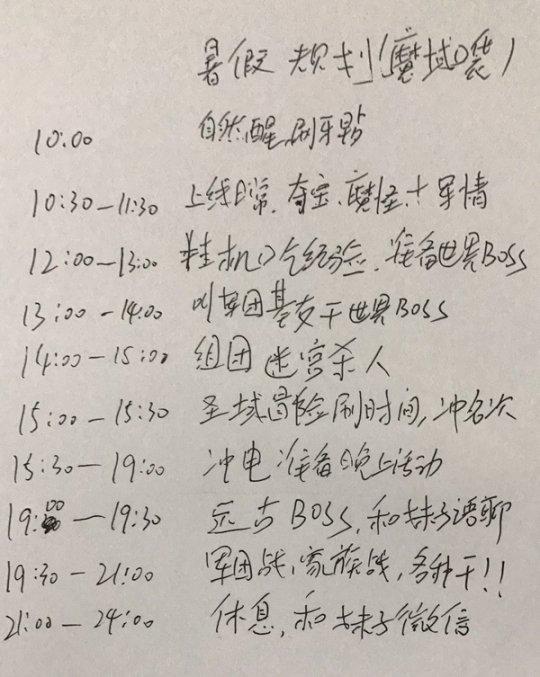 暑假 规划(魔域口袋)
10:00 自然醒,刷牙
10:30—11:30 上线日常,夺宝,魔怪,十军情
12:00—13:00 挂机吃经验,准备世界BOSS
13:00—14:00 叫军团基友干世界BOSS
14:00—15:00 组团迷宫杀人
15:00—15:30 圣域冒险刷时间,冲名次
15:30—19:00 冲电 准备晚上活动
19:00—19:30 远古BOSS,和妹子语聊
19:30—21:00 军团战,家族战,各种干!!
21:00—24:00 休息,和妹子微信